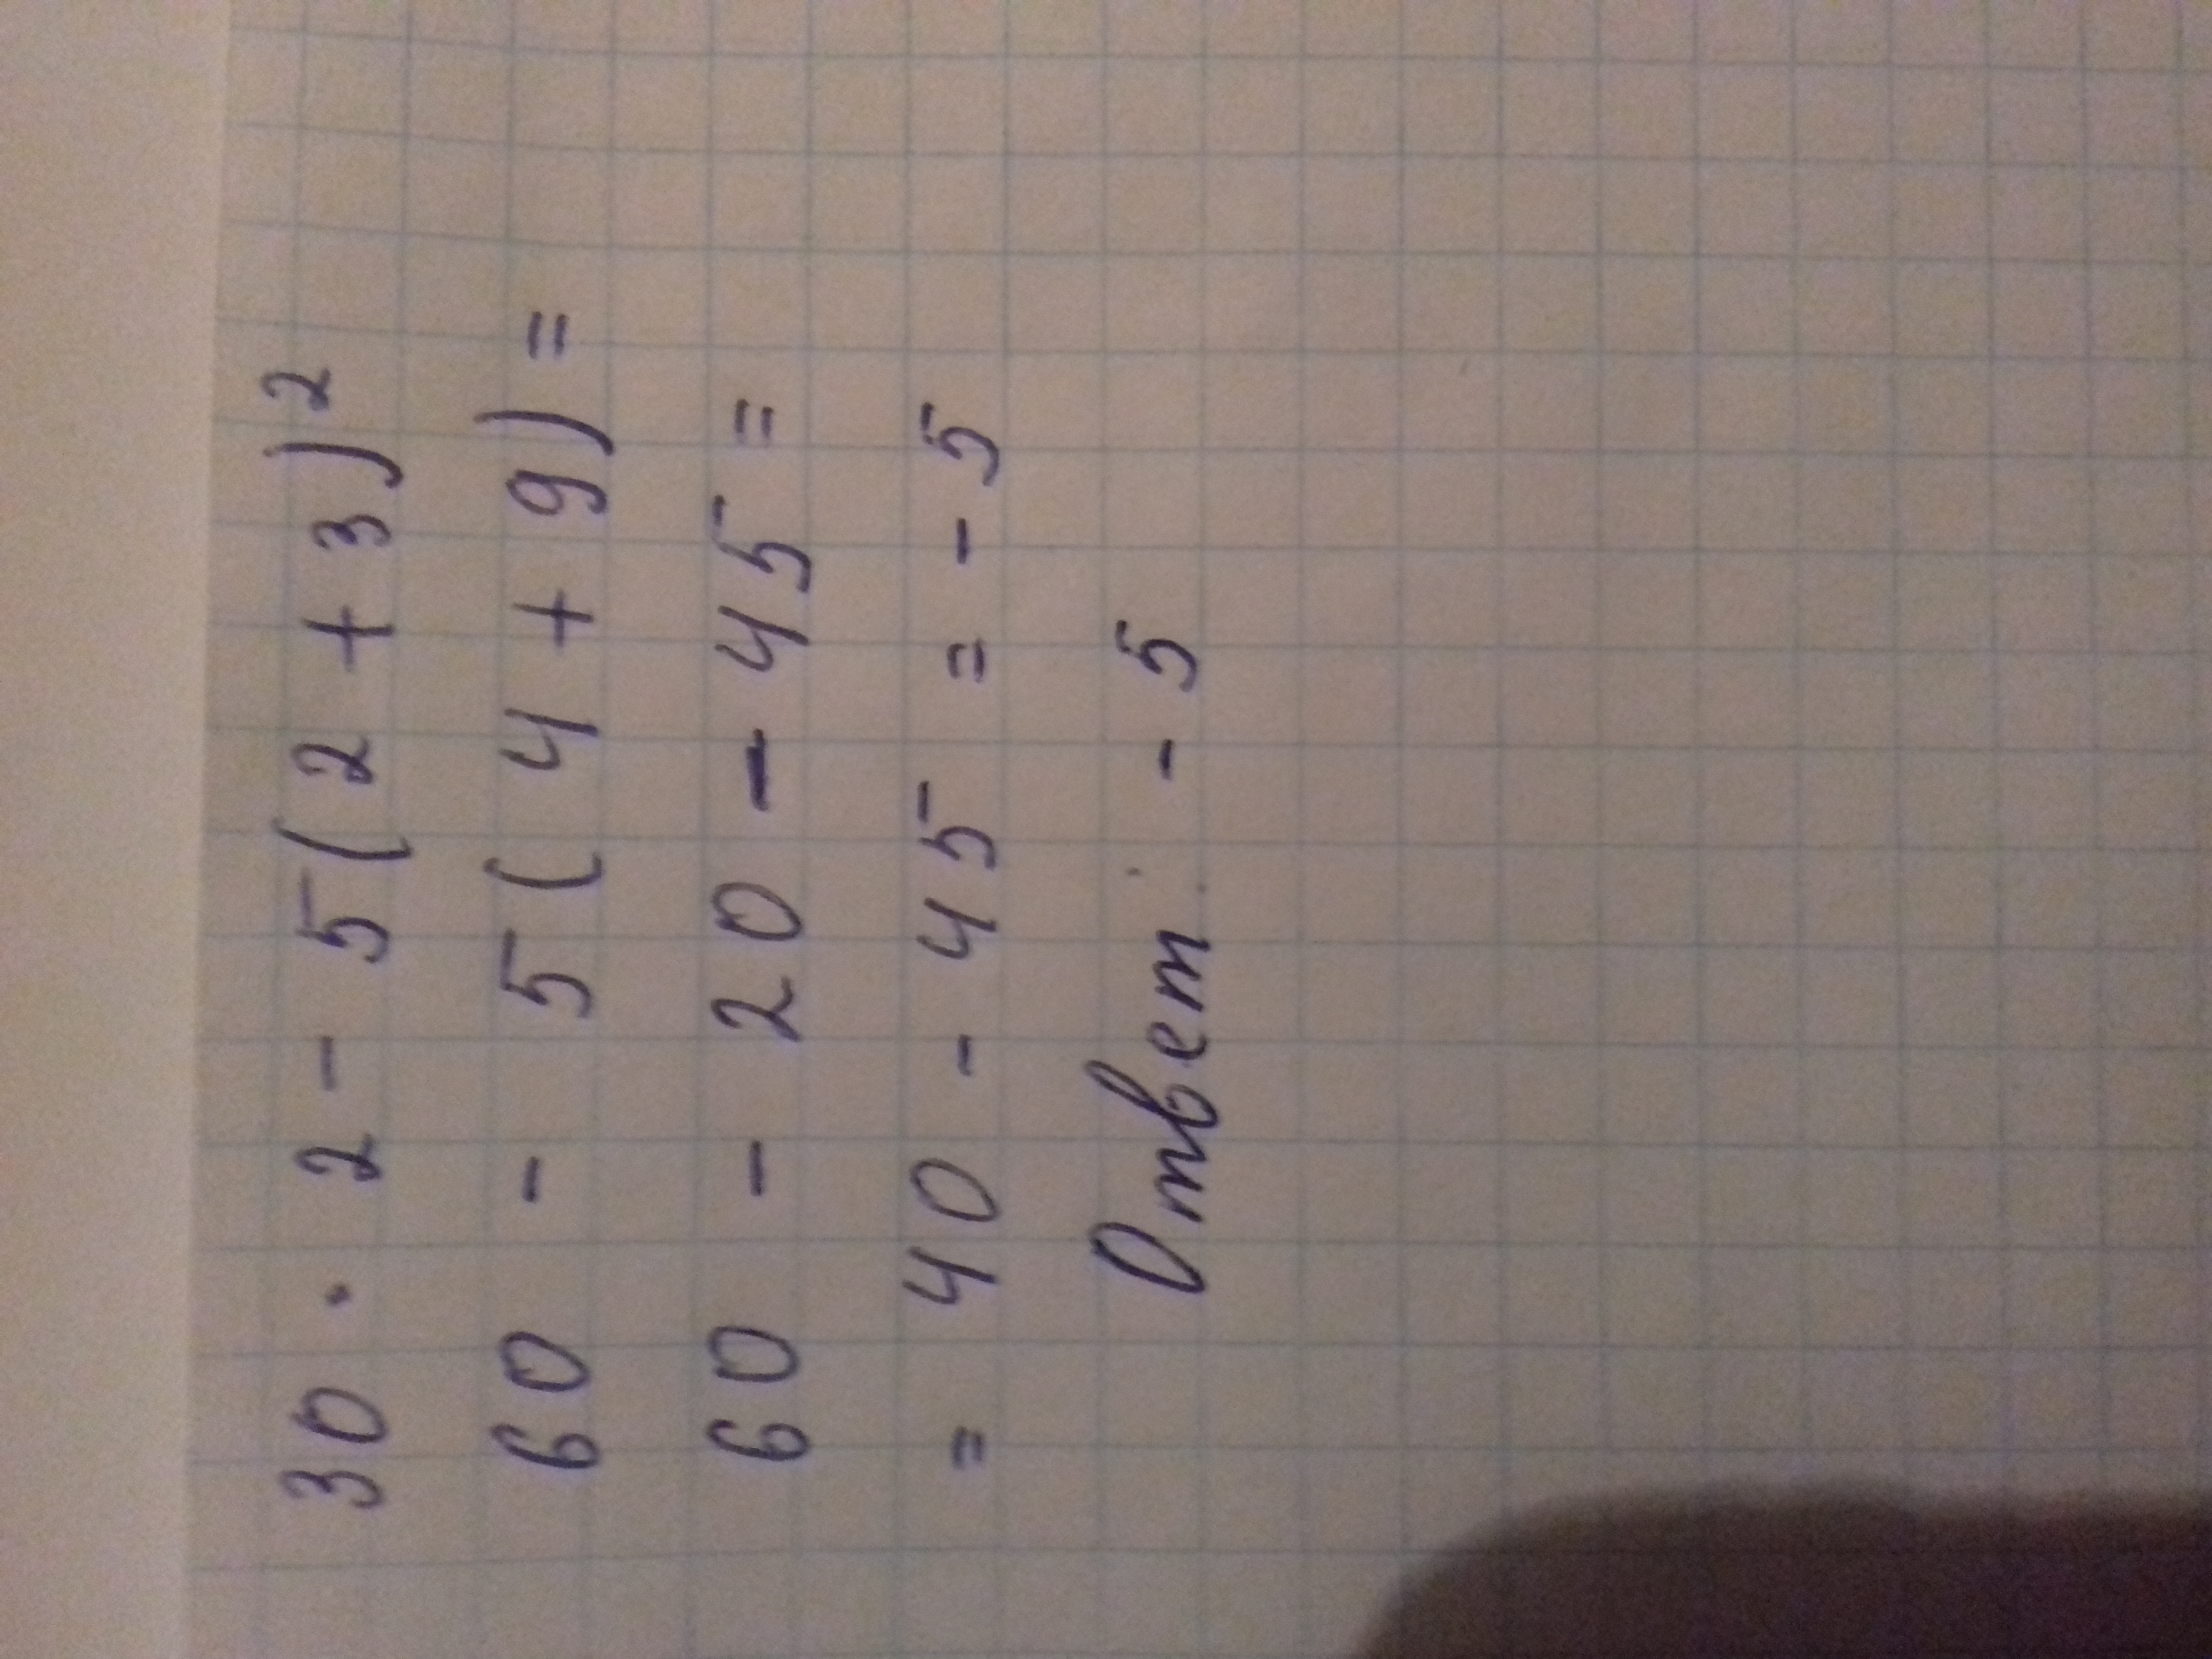 30 · 2 - 5(2 + 3)²
60 - 5(4 + 9) =
60 - 20 - 45 =
= 40 - 45 = - 5
Ответ: - 5